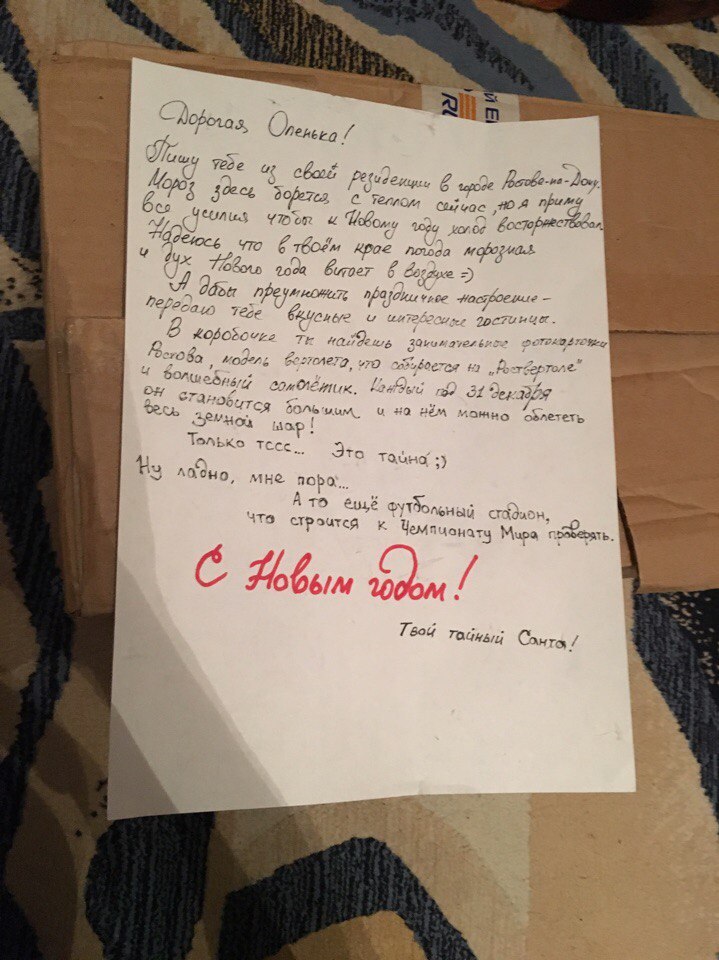 Дорогая Оленька!
Пишу тебе из своей резиденции в городе Ростова-на-Дону.
Мороз здесь борется с теплом сейчас, но я приму
все усилия чтобы к Новому году холод восторжествовал.
Надеюсь что в твоём крае погода морозная
и дух Нового года витает в воздухе =)
А дабы преумножить праздничное настроение -
передаю тебе вкусные и интересные гостинцы.
В коробочке ты найдёшь занимательные фотокарточки
Ростова, модель вертолета, что собирается на "Роствертоле"
и волшебный самолётик. Каждый год 31 декабря
он становится большим и на нём можно облететь
весь земной шар!
Только тссс... Это тайна ;)
Ну ладно, мне пора...
А то ещё футбольный стадион,
что строится к Чемпионату Мира проверять.
С Новым годом!
Твой тайный Санта!